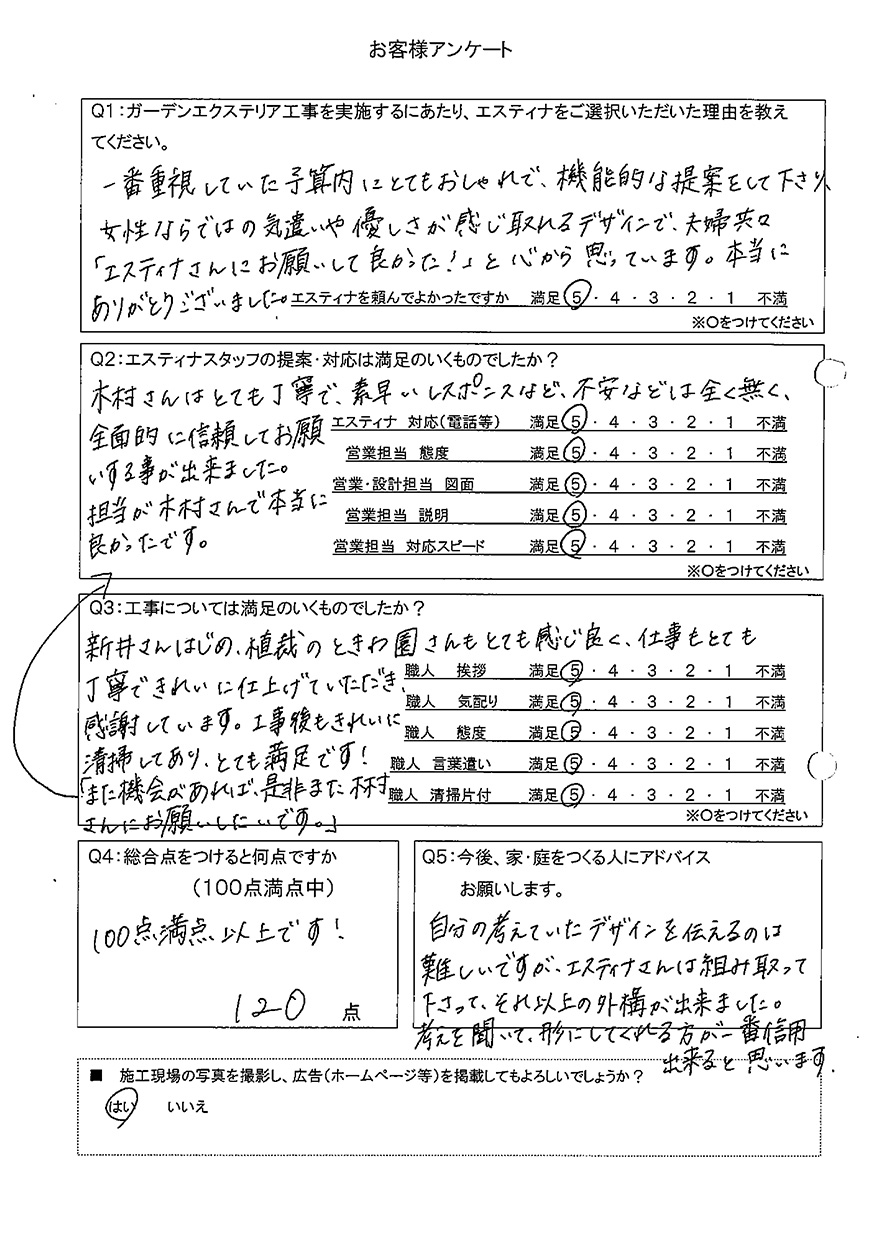 お客様アンケート
Q1：ガーデンエクステリア工事を実施するにあたり、エスティナをご選択いただいた理由を教え
てください。
一番重視していた予算内にとてもおしゃれで、機能的な提案をして下さり、
女性ならではの気遣いや優しさが感じ取れるデザインで、夫婦共々
「エスティナさんにお願いして良かった！」と心から思っています。本当に
ありがとうございました。
エスティナを頼んでよかったですか 満足 5・4・3・2・1 不満
※○をつけてください
Q2：エスティナスタッフの提案・対応は満足のいくものでしたか？
木村さんはとても丁寧で、素早いレスポンスなど、不安などは全く無く、
全面的に信頼してお願
いする事が出来ました。
担当が木村さんで本当に
良かったです。
エスティナ 対応（電話等） 満足 5・4・3・2・1 不満
営業担当 態度 満足 5・4・3・2・1 不満
営業・設計担当 図面 満足 5・4・3・2・1 不満
営業担当 説明 満足 5・4・3・2・1 不満
営業担当 対応スピード 満足 5・4・3・2・1 不満
※○をつけてください
Q3：工事については満足のいくものでしたか？
新井さんはじめ、植裁のときわ園さんもとても感じ良く、仕事もとても
丁寧できれいに仕上げていただき、
感謝しています。工事後もきれいに
清掃してあり、とても満足です！
「また機会があれば、是非また木村
さんにお願いしたいです。」
職人 挨拶 満足 5・4・3・2・1 不満
職人 気配り 満足 5・4・3・2・1 不満
職人 態度 満足 5・4・3・2・1 不満
職人 言葉遣い 満足 5・4・3・2・1 不満
職人 清掃片付 満足 5・4・3・2・1 不満
※○をつけてください
Q4：総合点をつけると何点ですか
（100点満点中）
100点満点以上です！
120 点
Q5：今後、家・庭をつくる人にアドバイス
お願いします。
自分の考えていたデザインを伝えるのは
難しいですが、エスティナさんは組み取って
下さって、それ以上の外構が出来ました。
考えを聞いて、形にしてくれる方が一番信用
出来ると思います。
■ 施工現場の写真を撮影し、広告（ホームページ等）を掲載してもよろしいでしょうか？
はい いいえ